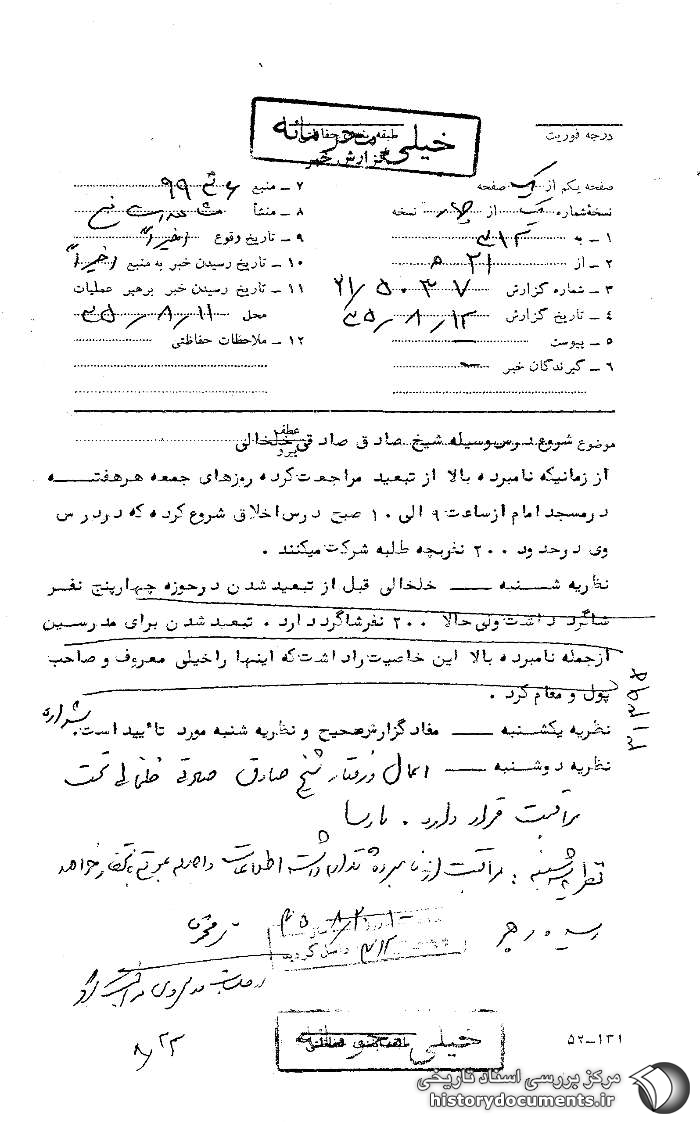 خیلی محرمانه
درجه فوریت
طبقه بندی حفاظتی
گزارش خبر
صفحه یکم از یک صفحه
نسخه شماره یک از نسخه
۱ ـ به ۳۱۲
۲ ـ از ۲۱ ه
۳ ـ شماره گزارش ۲۱/۵۰۳۷
۴ ـ تاریخ گزارش ۳۵/۸/۱۲
۵ ـ پیوست
۶ ـ گیرندگان خبر
۷ ـ منبع
۸ ـ منشأ
۹ ـ تاریخ وقوع اخیراً
۱۰ ـ تاریخ رسیدن خبر به منبع اخیراً
۱۱ ـ تاریخ رسیدن خبر برهبر عملیات
محل ۳۵/۸/۱۱
۱۲ ـ ملاحظات حفاظتی
عطف
موضوع شروع درس بوسیله شیخ صادق صادقی خلخالی
از زمانیکه نامبرده بالا از تبعید مراجعت کرده روزهای جمعه هرهفته
درمسجد امام ازساعت ۹ الی ۱۰ صبح درس اخلاق شروع کرده که در درس
وی درحدود ۲۰۰ نفربچه طلبه شرکت میکنند .
نظریه شنبه ـــ خلخالی قبل از تبعید شدن درحوزه چهارپنج نفر
شاگرد داشت ولی حالا ۲۰۰ نفرشاگرد دارد . تبعید شدن برای مدرسین
ازجمله نامبرده بالا این خاصیت راداشت که اینها راخیلی معروف و صاحب
پول و مقام کرد .
نظریه یکشنبه ـــ مفاد گزارش صحیح و نظریه شنبه مورد تائید است .
نظریه دوشنبه ـــ اعمال و رفتار شیخ صادق صادقی خلخالی تحت
مراقبت قرار دارد . پارسا
نظریه سه شنبه : مراقبت از نامبرده تداوم داشته اطلاعات واصله
خیلی محرمانه
۵۲ـ۱۳۱
۸/۲۳
مرکز بررسی اسناد تاریخی
historydocuments.ir